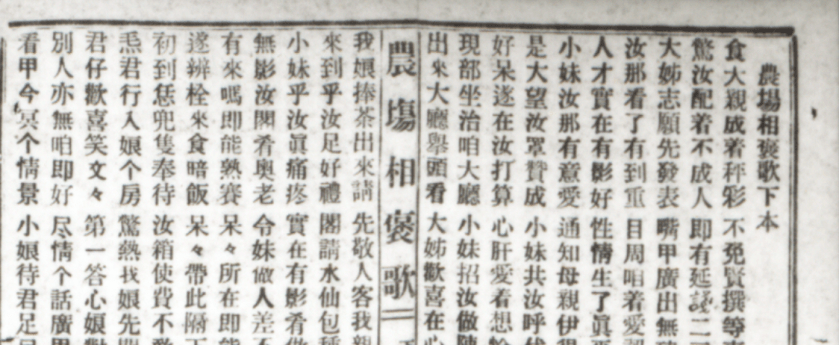 農場相褒歌下本
食大親成着秤彩 不免賢撰等
驚汝配着不成人 即有延 二
大姊志願先發表 嘴甲廣出無
汝那看了有到重 目周咱着愛
人才實在有影好 性情生了眞
小妹汝那有意愛 通知母親伊
是大望汝罩贊成 小妹共汝呼
好呆遂在汝打算 心肝愛着想
現部坐治咱大廳 小妹招汝做
出來大廳舉頭看 大姊歡喜在心
農塲相褒歌
我娘捧茶出來請 先敬人客我
來到乎汝足好禮 閣請水仙包
小妹乎汝眞痛疼 實在有影肴
無影汝閑肴奧老 令妹做人差
有來嗎即能熱賽 呆々所在即能
遂辨栓來食暗飯 呆々帶此隔
初到恁兜隻奉待 汝箱使費不
炁君行入娘个房 驚熱我娘先
君仔歡喜笑文々 第一答心娘
別人亦無咱即好 尽情个話廣
看甲今冥个情景 小娘待君足